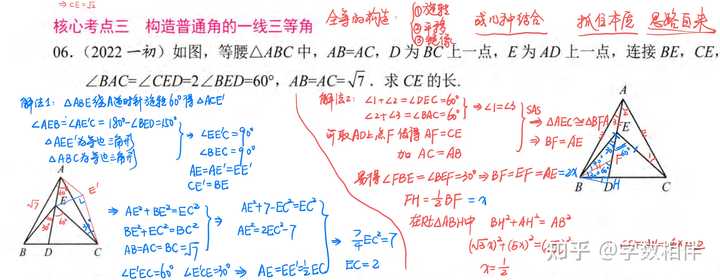 ⇒ CE=√2
核心考点三 构造普通角的一线三等角
全等的构造: ①旋转 ②平移 ③轴对称
或几种结合
抓住本质 思路自来
06.(2022一初)如图,等腰△ABC中,AB=AC,D为BC上一点,E为AD上一点,连接BE,CE,
∠BAC=∠CED=2∠BED=60°,AB=AC=√7.求CE的长.
解法1: △ABE绕A逆时针旋转60°得△ACE'
∠AEB=∠AE'C=180°-∠BED=150°
△AEE'为等边三角形
△ABC为等边三角形
⇒ ∠EE'C=90°
∠BEC=90°
AE=AE'=EE'
CE'=BE
A
E
E'
√7
B D C
⇒ AE²+BE²=EC²
BE²+EC²=BC²
AB=AC=BC=√7
⇒ AE²+7-EC²=EC²
AE²=2EC²-7
∠E'EC=60° ∠E'CE=30° ⇒ AE=EE'=½EC
⇒ 7/4EC²=7
EC=2
解法2: ∠1+∠2=∠DEC=60°
∠2+∠3=∠BAC=60°
⇒ ∠1=∠3
可取AD上点F使得AF=CE
加 AC=AB
SAS
⇒ △AEC≌△BFA
⇒ BF=AE
易得∠FBE=∠BEF=30° ⇒ BF=EF=AE=2x
FH=½BF=x
在Rt△ABH中 BH²+AH²=AB²
(√3x)²+(5x)²=(√7)²
x=½
A
E
F
B D H C
知乎 @学数相伴